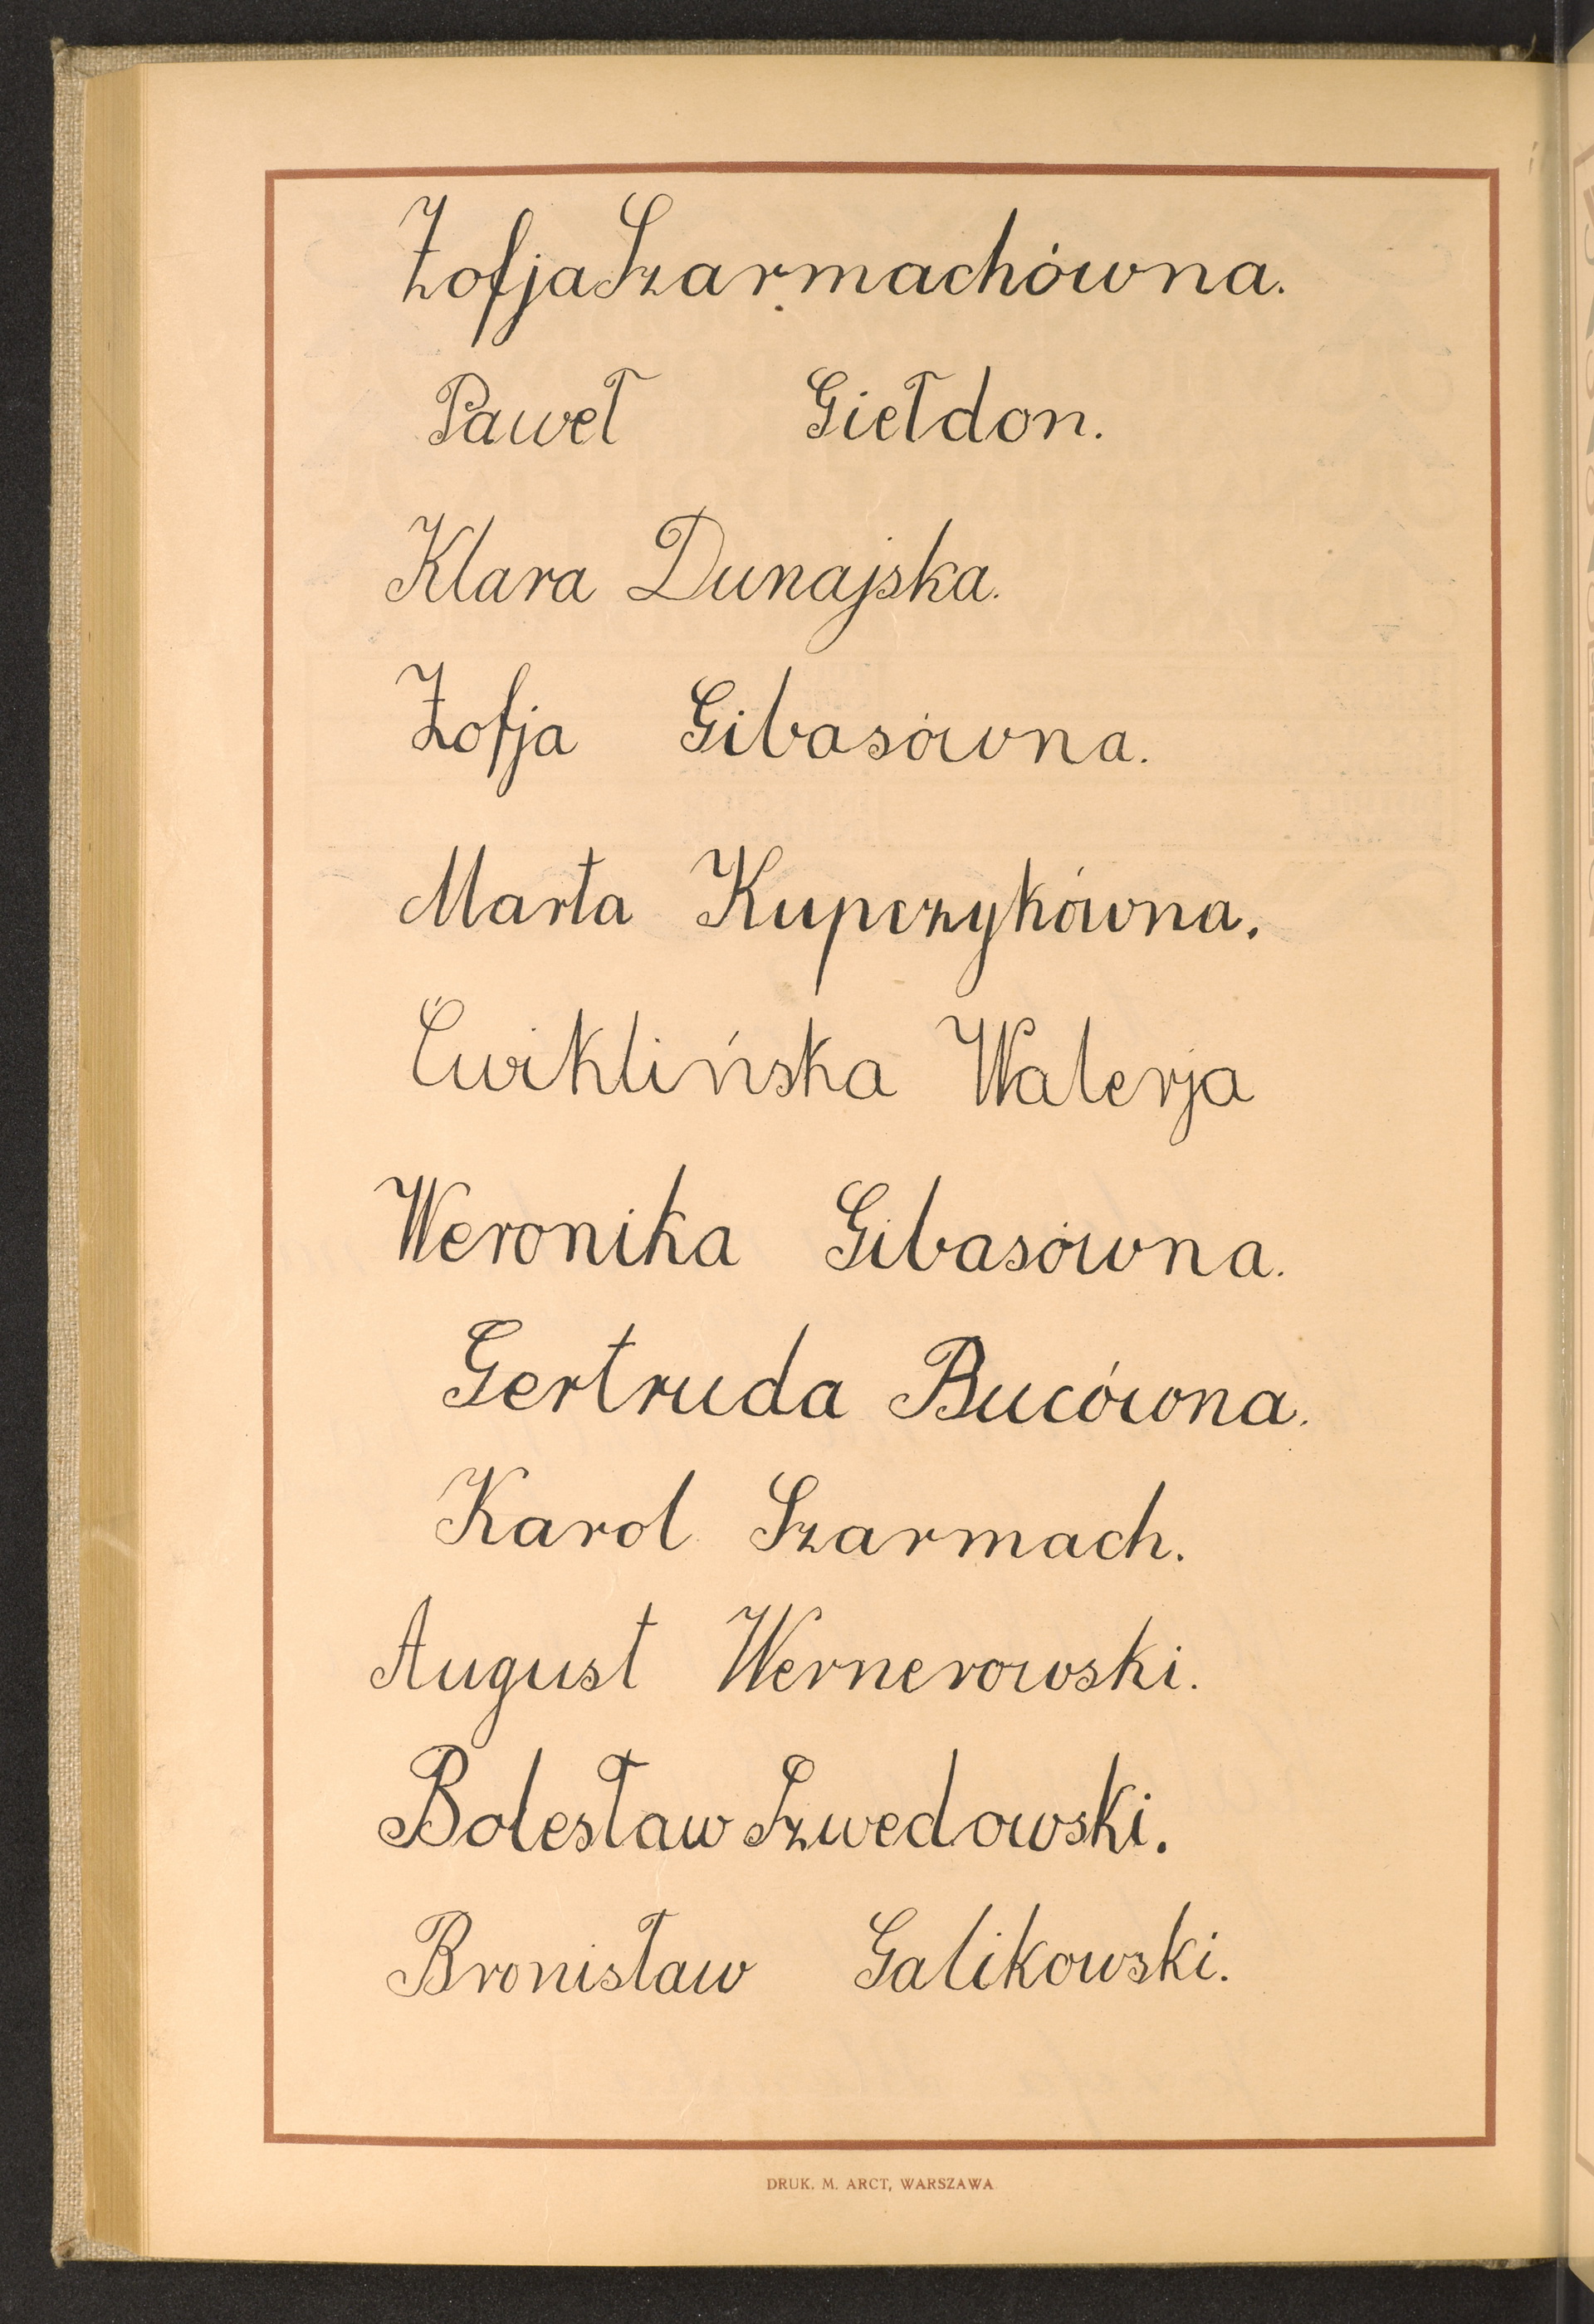 Zofja Szarmachówna.
Paweł Giełdon.
Klara Dunajska.
Zofja Gibasówna.
Marta Kupczykówna.
Ćwiklińska Walerja
Weronika Gibasówna.
Gertruda Bucówna.
Karol Szarmach.
August Wernerowski.
Bolesław Szwedowski.
Bronisław Galikowski.
DRUK. M. ARCT, WARSZAWA